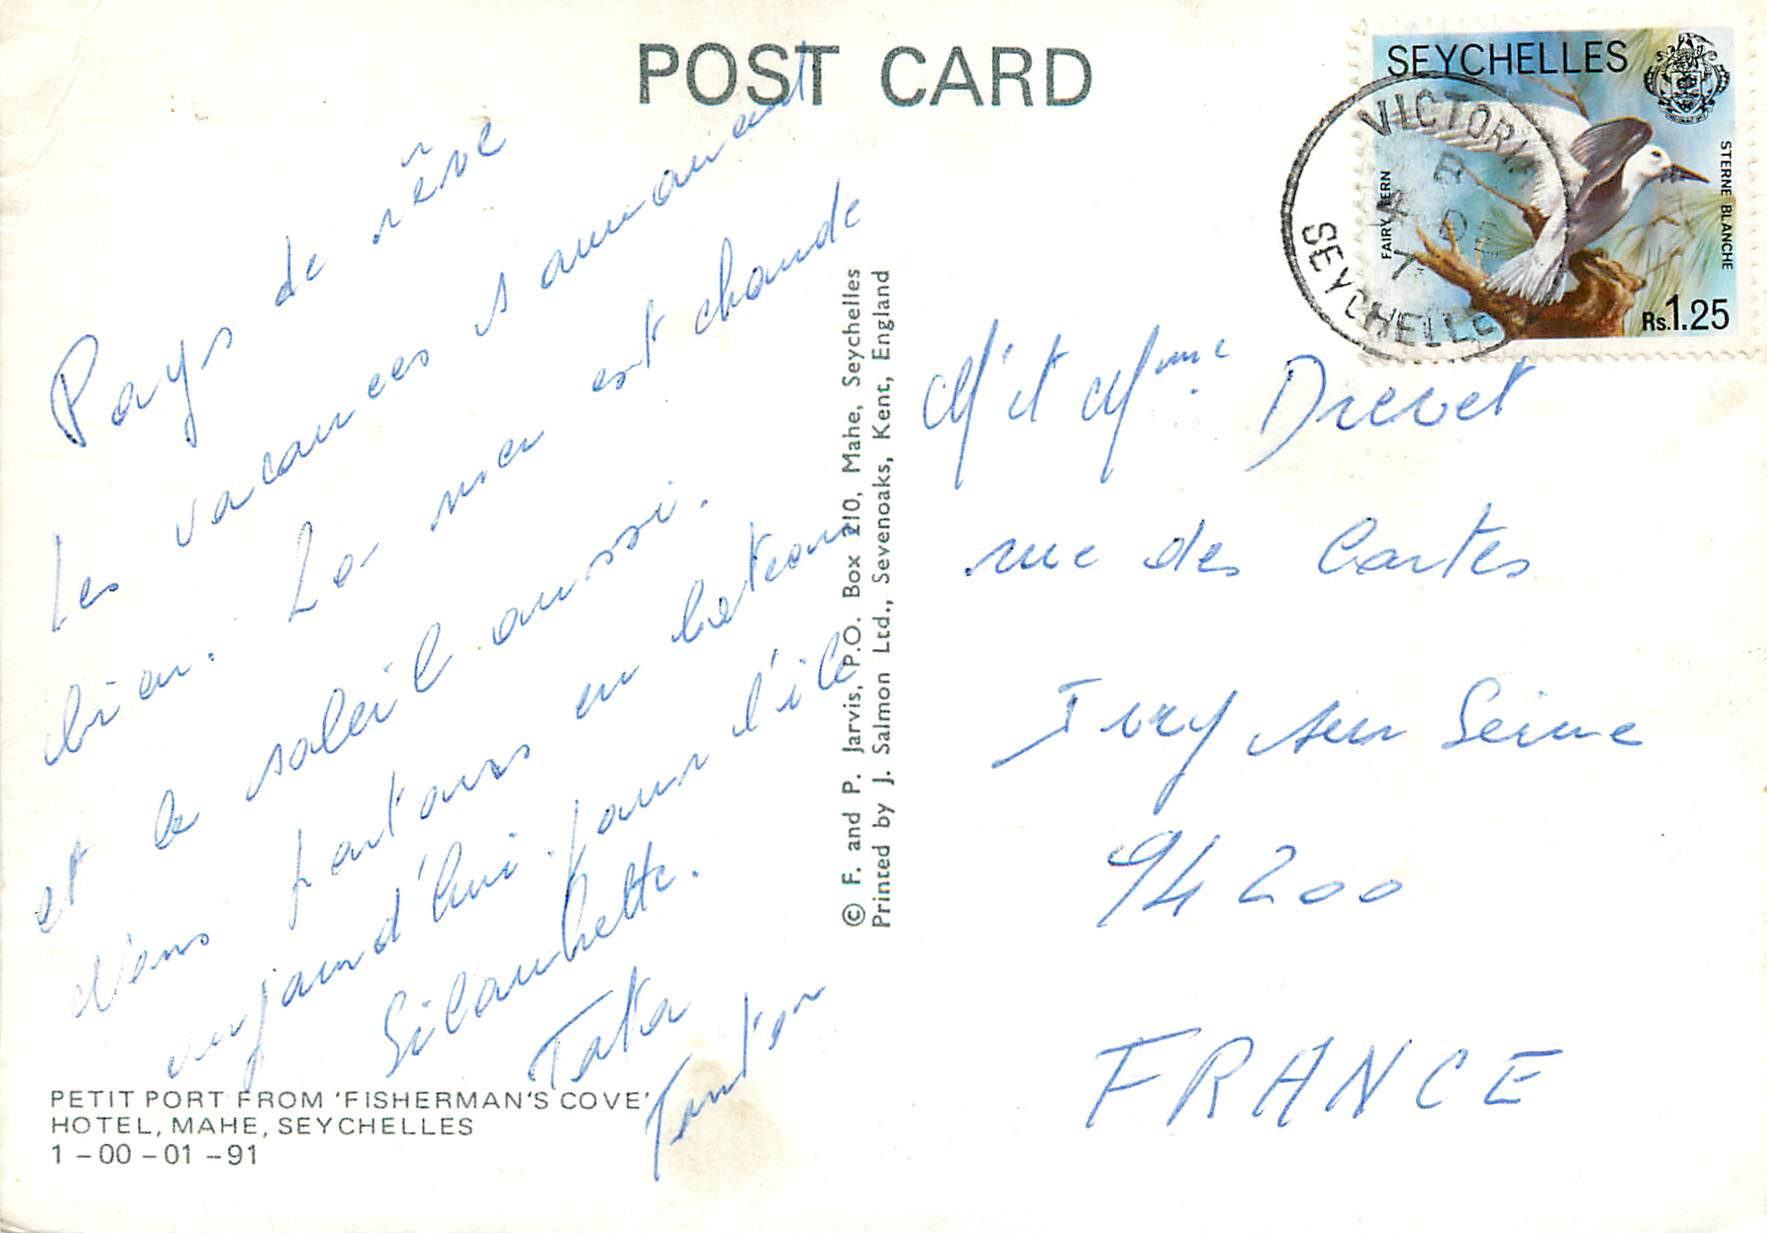 POST CARD
Pays de rêve
Les vacances s'annoncent
bien. La mer est chaude
et le soleil aussi.
Nous partons en bateau
aujourd'hui pour l'île
Silouhette.
Tata
Tonton
PETIT PORT FROM 'FISHERMAN'S COVE'
HOTEL, MAHE, SEYCHELLES
1 - 00 - 01 - 91
© F. and P. Jarvis, P.O. Box 210, Mahe, Seychelles
Printed by J. Salmon Ltd., Sevenoaks, Kent, England
SEYCHELLES
FAIRY TERN
STERNE BLANCHE
Rs.1.25
VICTORIA
SEYCHELLES
M. et Mme Drevet
rue des Cartes
Ivry sur Seine
94200
FRANCE